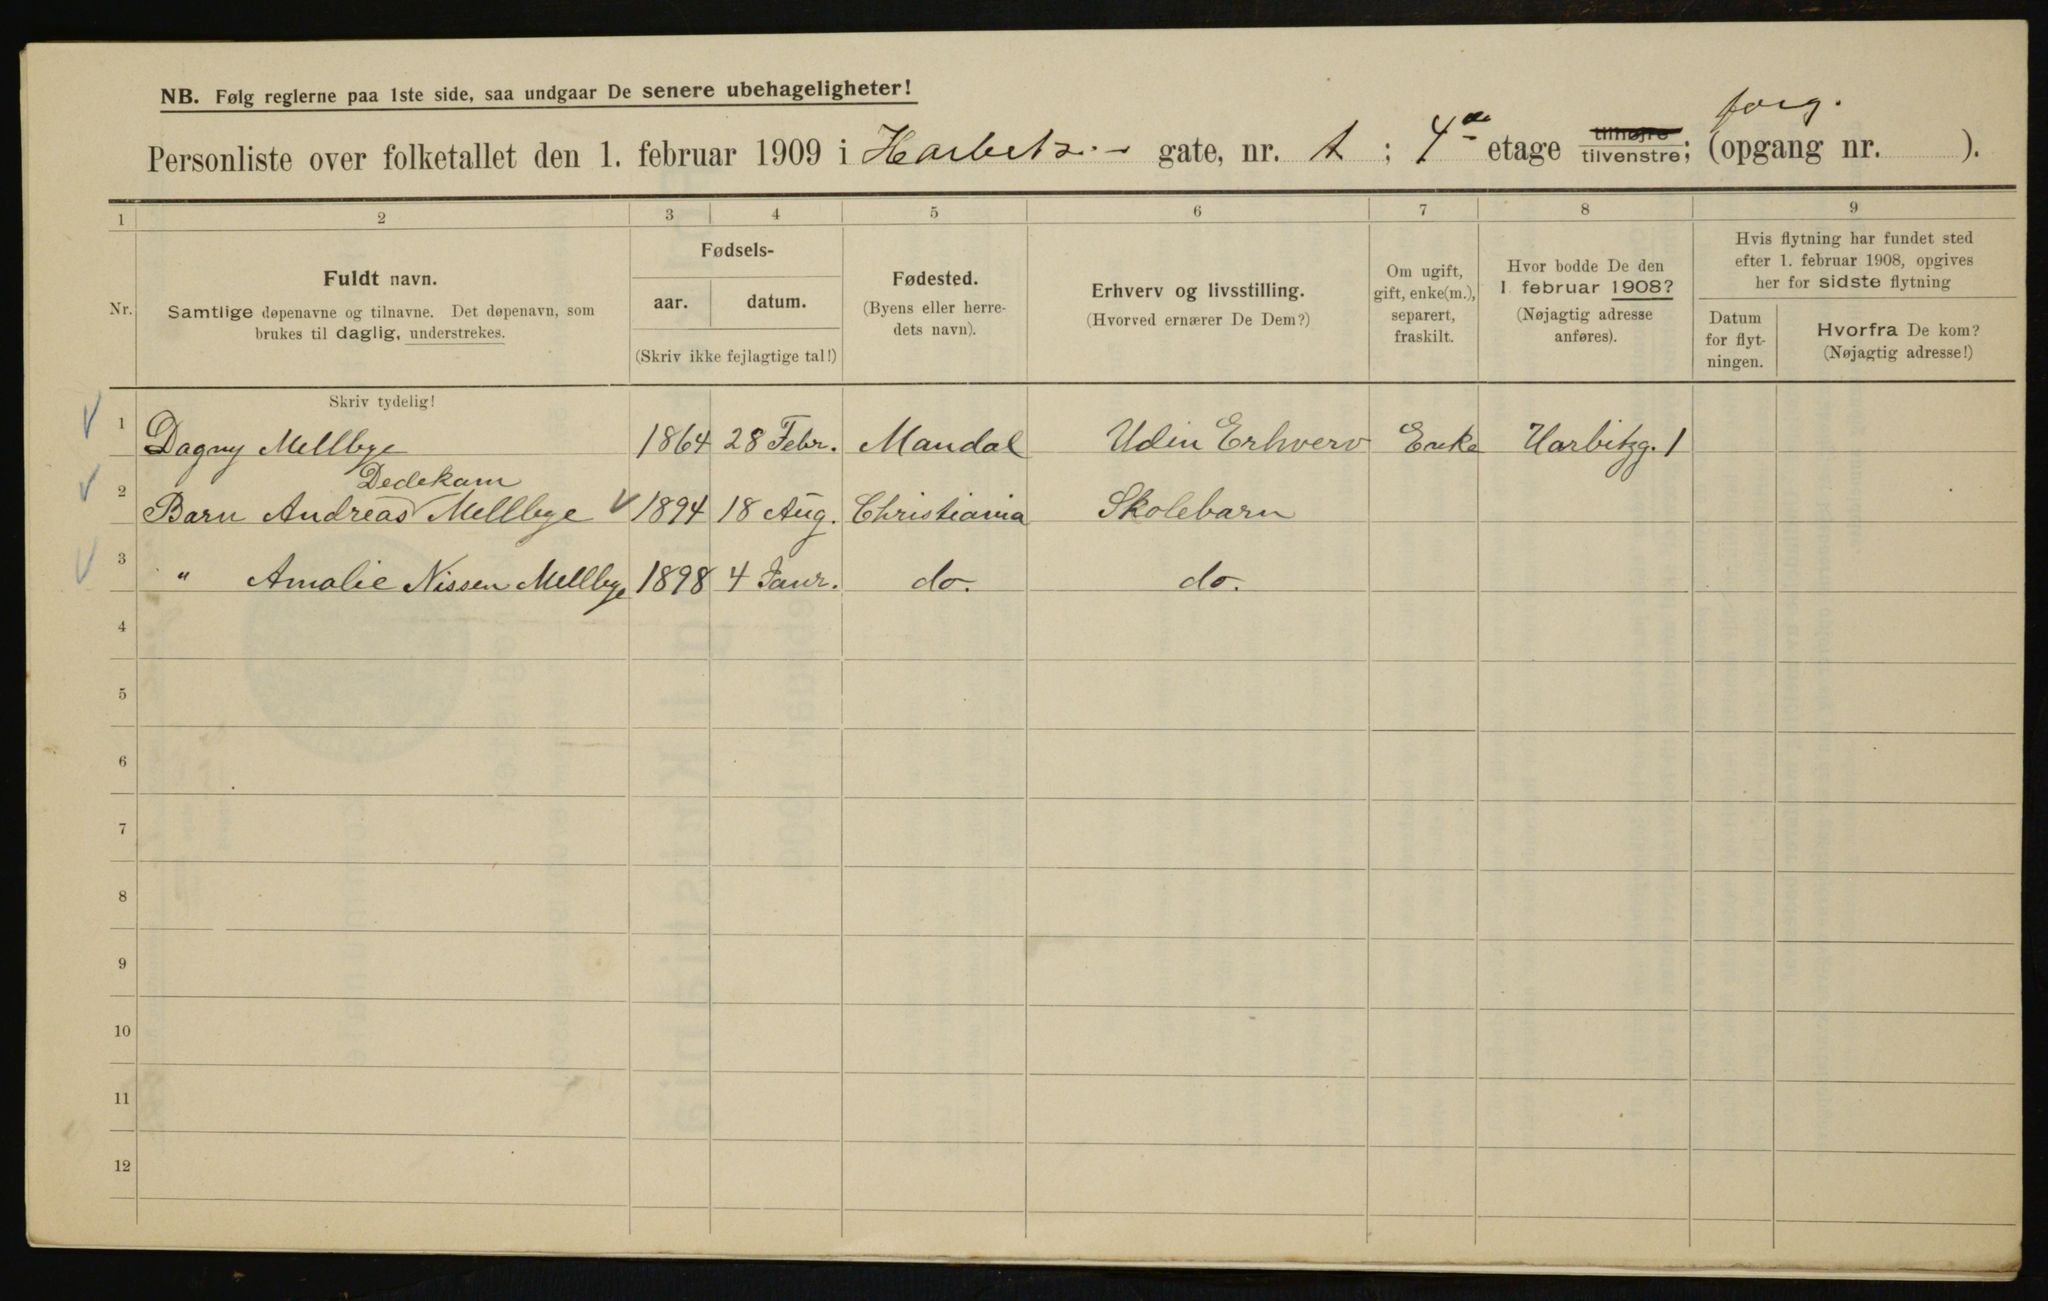 NB. Følg reglerne paa 1ste side, saa undgaar De senere ubehageligheter!
forg.
Personliste over folketallet den 1. februar 1909 i Harbitz.- gate, nr. 1; 4de etage tilhøjre tilvenstre; (opgang nr. ).
1 2 3 4 5 6 7 8 9
Nr.
Fuldt navn.
Samtlige døpenavne og tilnavne. Det døpenavn, som
brukes til daglig, understrekes.
Fødsels-
aar. datum.
(Skriv ikke fejlagtige tal!)
Fødested.
(Byens eller herre-
dets navn).
Erhverv og livsstilling.
(Hvorved ernærer De Dem?)
Om ugift,
gift, enke(m.),
separert,
fraskilt.
Hvor bodde De den
1 februar 1908?
(Nøjagtig adresse
anføres).
Hvis flytning har fundet sted
efter 1. februar 1908, opgives
her for sidste flytning
Datum
for flyt-
ningen.
Hvorfra De kom?
(Nøjagtig adresse!)
Skriv tydelig!
1 Dagny Mellbye 1864 28 Febr. Mandal Uden Erhverv Enke Harbitzg. 1
Dedekam
2 Barn Andreas Mellbye 1894 18 Aug. Christiania Skolebarn
3 " Amalie Nissen Mellbye 1898 4 Janr. do. do.
4
5
6
7
8
9
10
11
12